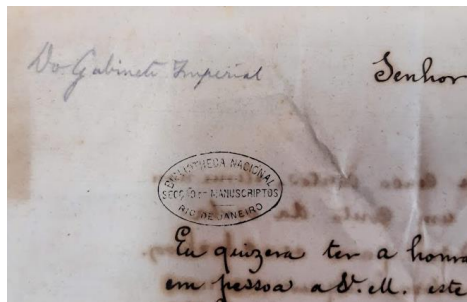 Do Gabinete Imperial
Senhor
BIBLIOTHECA NACIONAL
SECÇÃO DE MANUSCRIPTOS
RIO DE JANEIRO
Eu quizera ter a honra
em pessoa a V. M. este